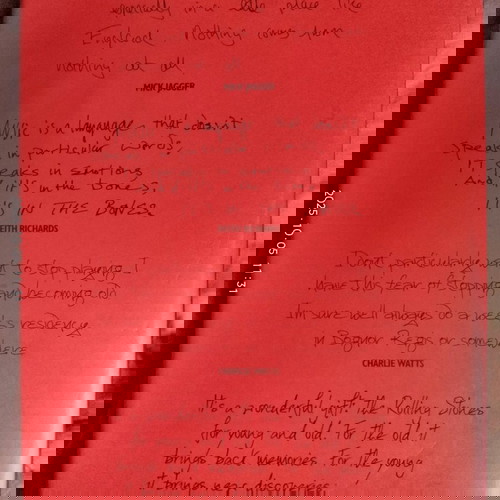 in a place like
England. Nothing
nothing at all
MICK JAGGER
Music is a language that doesn't
speak in particular words.
It speaks in emotions
And 'IT'S' in the Bones,
IT'S IN THE BONES
KEITH RICHARDS
I don't particularly want to stop playing. I
have this fear of stopping and becoming old.
I'm sure we'll always do a week's residency
in Bognor Regis or somewhere
CHARLIE WATTS
It's a wonderful gift. The Rolling Stones
for young and old. For the old it
brings back memories. For the young
it brings new discoveries
2025.10.05 11:31